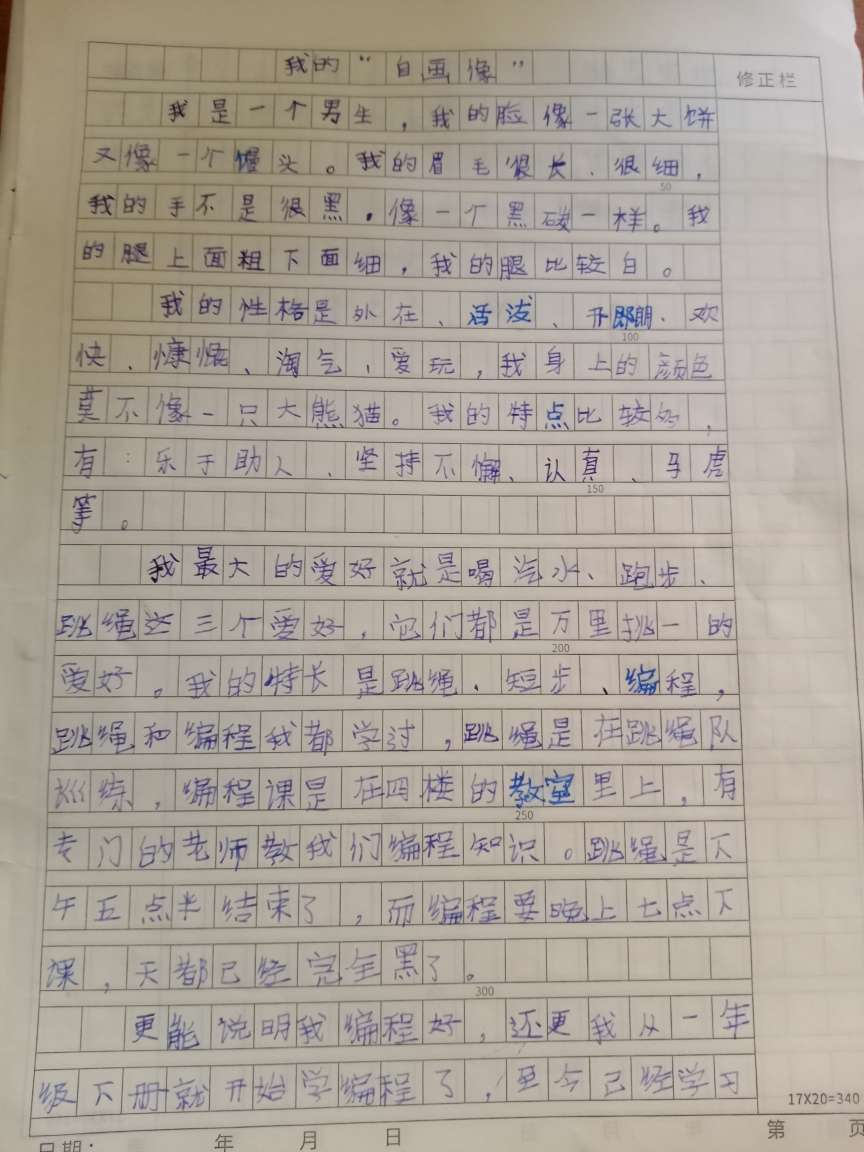 我的“自画像”
修正栏
我是一个男生，我的脸像一张大饼
又像一个馒头。我的眉毛很长、很细，
50
我的手不是很黑。像一个黑碳一样。我
的腿上面粗下面细，我的腿比较白。
我的性格是外在、活泼、开朗、欢
100
快、慷慨、淘气、爱玩，我身上的颜色
莫不像一只大熊猫。我的特点比较多，
有：乐于助人、坚持不懈、认真、马虎
150
等。
我最大的爱好就是喝汽水、跑步、
跳绳这三个爱好，它们都是万里挑一的
200
爱好。我的特长是跳绳、短步、编程，
跳绳和编程我都学过，跳绳是在跳绳队
训练，编程课是在四楼的教室里上，有
250
专门的老师教我们编程知识。跳绳是下
午五点半结束了，而编程要晚上七点下
课，天都已经完全黑了。
300
更能说明我编程好，还更我从一年
级下册就开始学编程了，至今已经学习
17X20=340
日期： 年 月 日 第 页